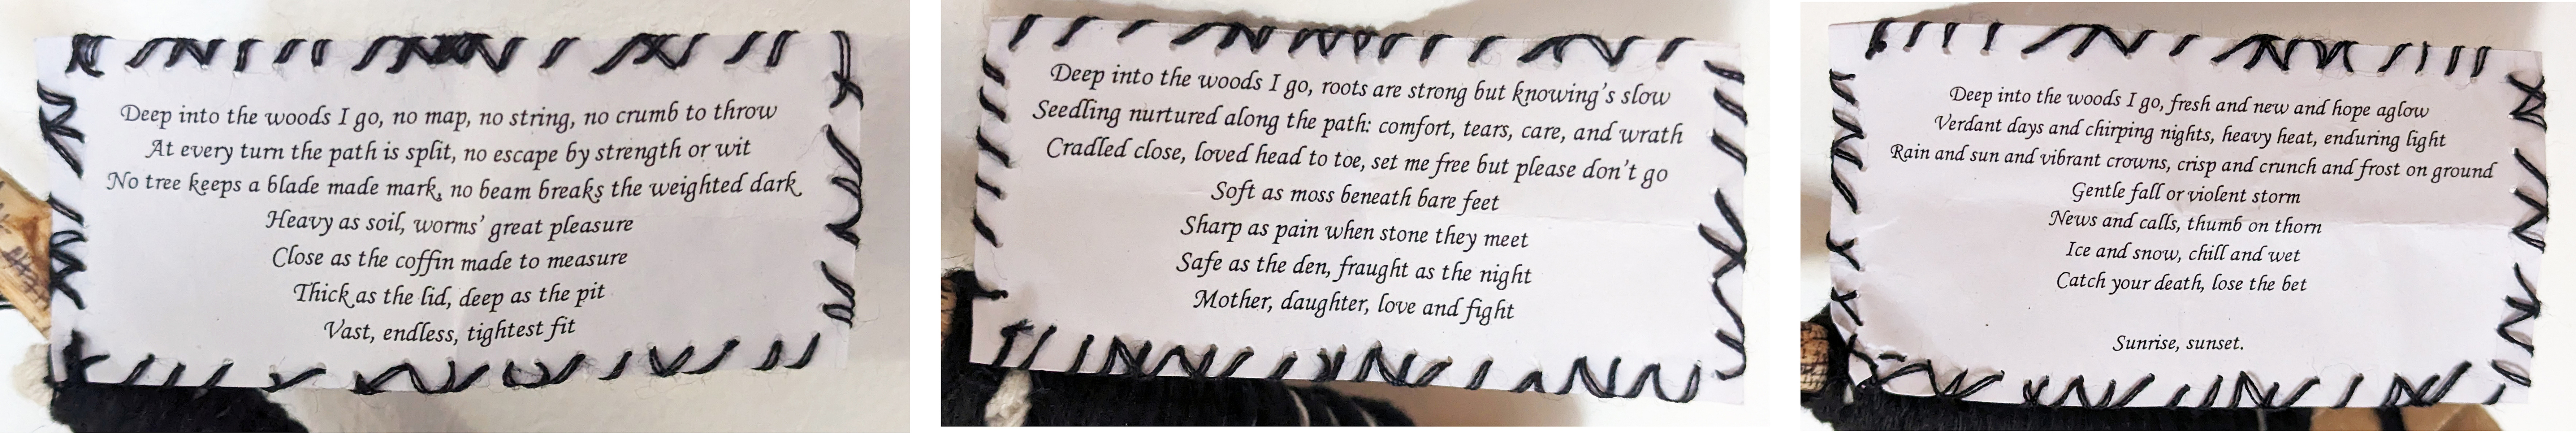 Deep into the woods I go, no map, no string, no crumb to throw
At every turn the path is split, no escape by strength or wit
No tree keeps a blade made mark, no beam breaks the weighted dark
Heavy as soil, worms' great pleasure
Close as the coffin made to measure
Thick as the lid, deep as the pit
Vast, endless, tightest fit
Deep into the woods I go, roots are strong but knowing's slow
Seedling nurtured along the path: comfort, tears, care, and wrath
Cradled close, loved head to toe, set me free but please don't go
Soft as moss beneath bare feet
Sharp as pain when stone they meet
Safe as the den, fraught as the night
Mother, daughter, love and fight
Deep into the woods I go, fresh and new and hope aglow
Verdant days and chirping nights, heavy heat, enduring light
Rain and sun and vibrant crowns, crisp and crunch and frost on ground
Gentle fall or violent storm
News and calls, thumb on thorn
Ice and snow, chill and wet
Catch your death, lose the bet
Sunrise, sunset.